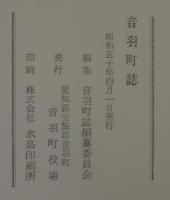 音羽町誌
昭和五十年四月一日発行
編集 音羽町誌編纂委員会
愛知県宝飯郡音羽町
発行 音羽町役場
印刷 株式会社 水鳥印刷所